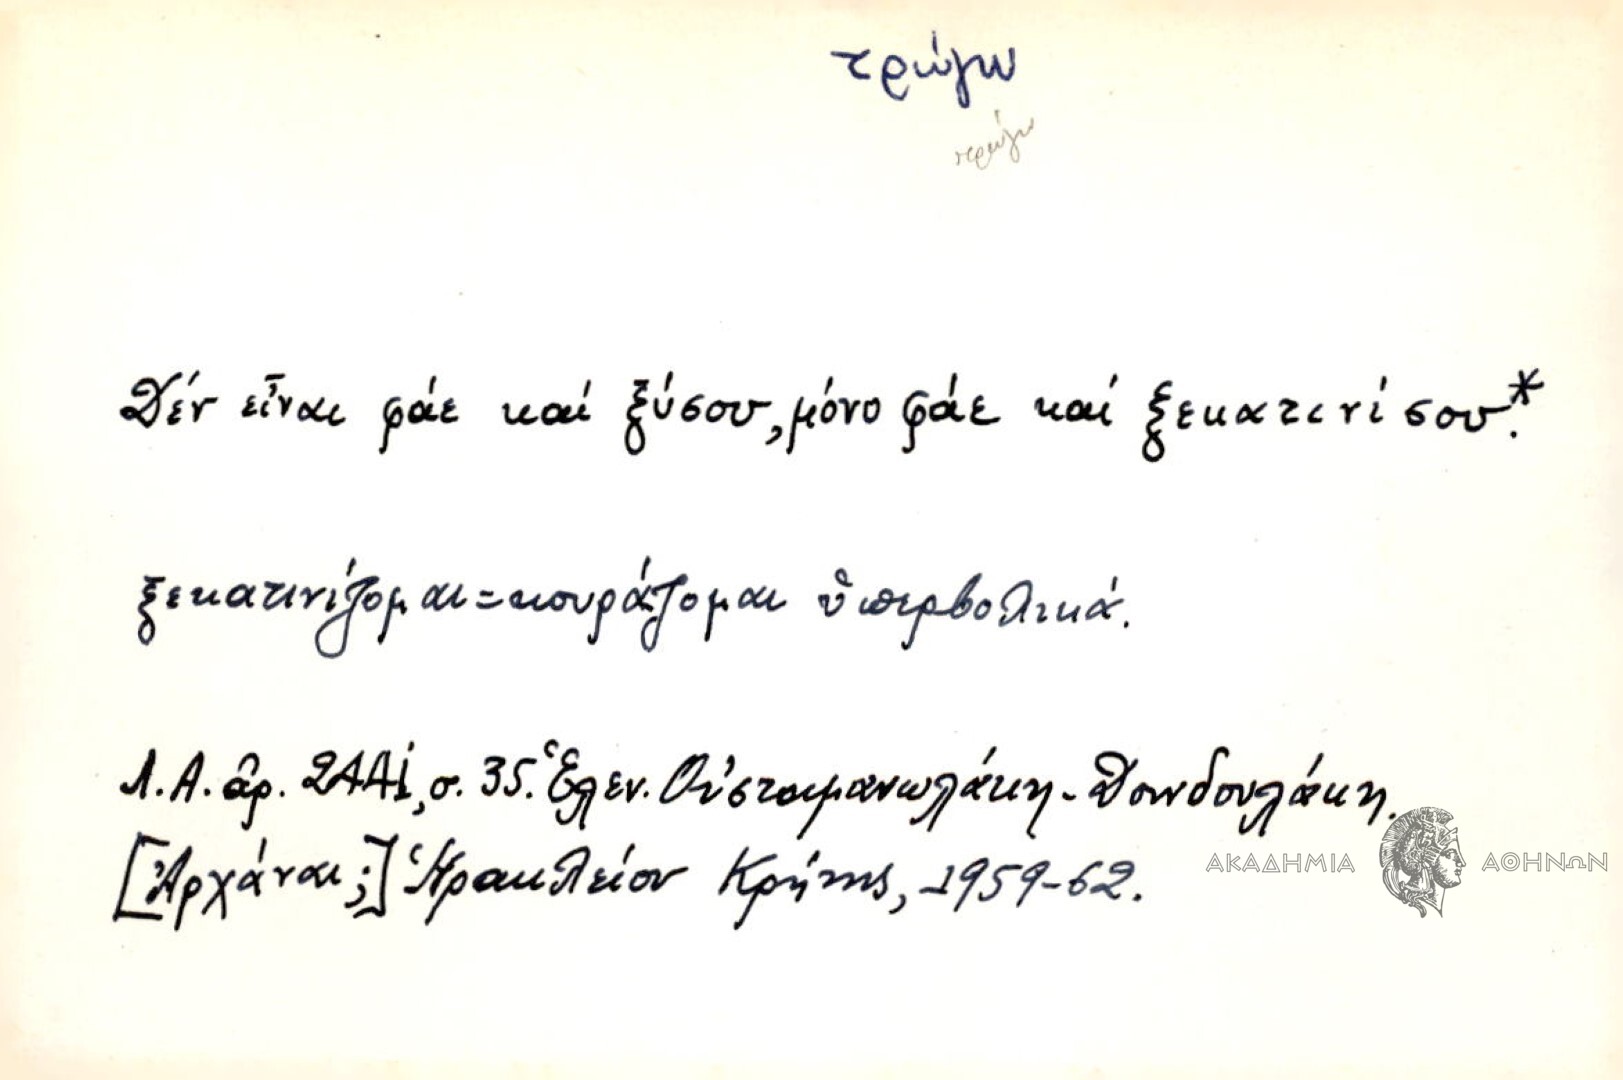 τρώγω
τρώγω
Δέν εἶναι φάε καί ξύσου, μόνο φάε καί ξεκατινίσου.*
ξεκατινίζομαι = κουράζομαι ὑπερβολικά.
Λ.Α. ἀρ. 2441, σ. 35. Ἑλεν. Οὐσταμανωλάκη - Δουνδουλάκη.
[Ἀρχάναι;] Ἡρακλείου Κρήτης, 1959-62.
ΑΚΑΔΗΜΙΑ ΑΘΗΝΩΝ